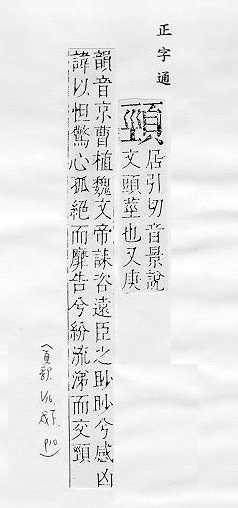 正字通
頸
居引切音景說
文頭莖也又庚
韻音京曹植魏文帝誄咨遠臣之眇眇兮感凶
諱以怛驚心孤絕而靡告兮紛流涕而交頸
P10)